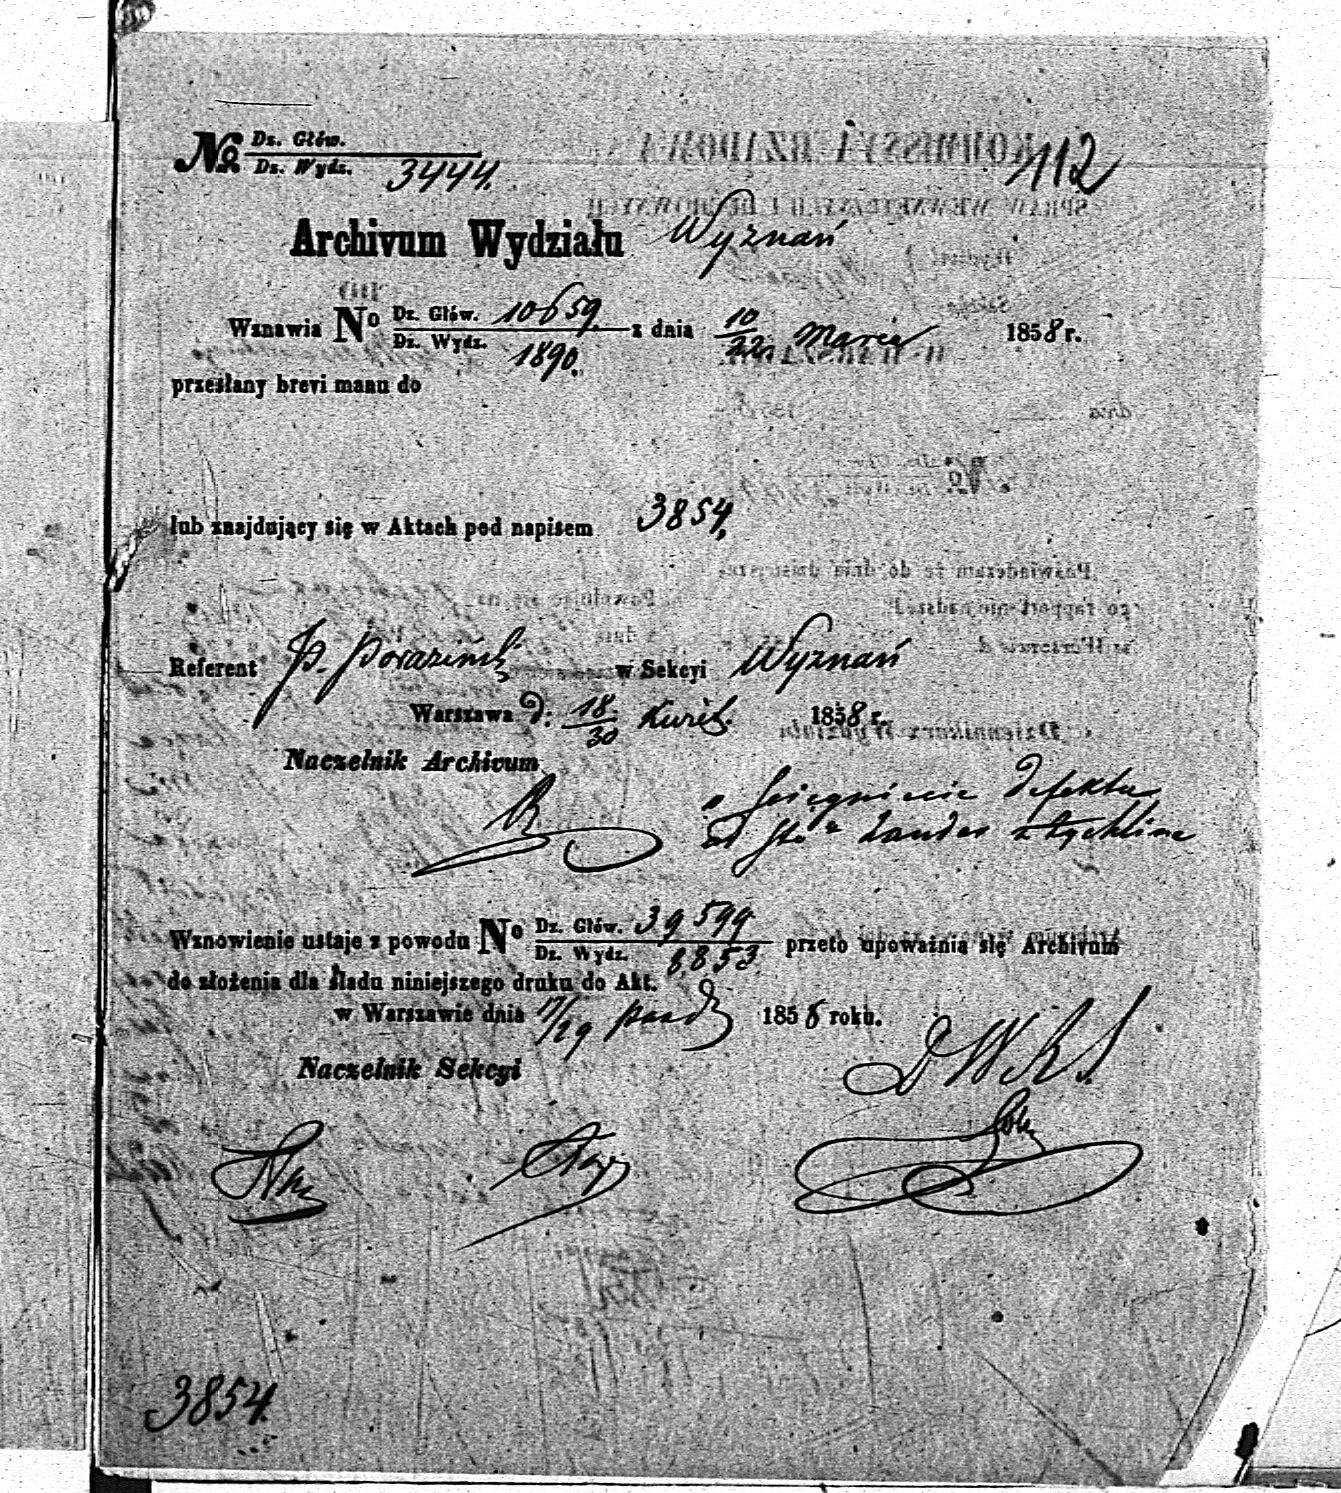 112
№ Dz. Głów.
Dz. Wydz. 3444.
Archivum Wydziału Wyznań
Wznawia No Dz. Głów. 10659. z dnia 10/22 Marca 1858 r.
Dz. Wydz. 1890.
przesłany brevi manu do
lub znajdujący się w Aktach pod napisem 3854,
Referent P. Poraziński w Sekcyi Wyznań
Warszawa d: 18/30 1858 r.
Naczelnik Archivum
defektu
od
Wznowienie ustaje z powodu No Dz. Głów. 39599 przeto upoważnia się Archivum
Dz. Wydz. 8853
do złożenia dla śladu niniejszego druku do Akt.
w Warszawie dnia 17/29 paźd 1858 roku.
Naczelnik Sekcyi
3854.